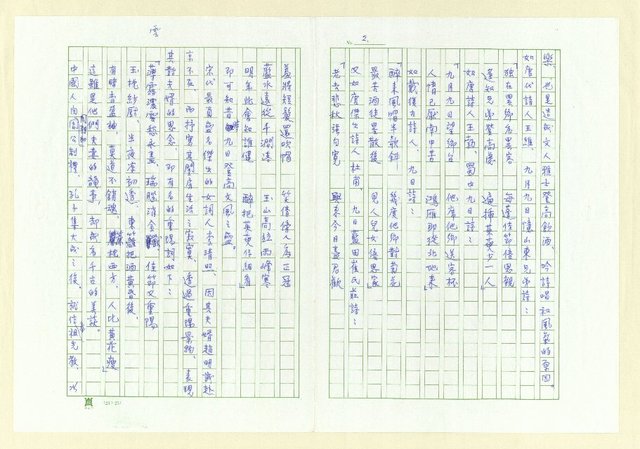 2.
樂，也是造成文人雅士登高飲酒，吟詩唱和風氣的重因。
如唐代詩人王維，九月九日憶山東兄弟詩：
「獨在異鄉為異客　每逢佳節倍思親
遙知兄弟登高處　遍插茱萸少一人」
如唐詩人王勃，蜀中九日詩：
「九月九日望鄉台　他席他鄉送客杯
人情已厭南中苦　鴻雁那從北地來
如戴復古詩人，九日詩：
「醉來風帽半欹斜　幾度他鄉對菊花
最苦酒徒星散後　見人兒女倍思家」
又如唐傑出詩人杜甫，九日藍田崔氏莊詩：
「老去悲秋強自寬　興來今日盡君歡
羞將短髮還吹帽　笑倩傍人為正冠
藍水遠從千澗落　玉山高並兩峰寒
明年此會知誰健　醉把茱萸仔細看」
即可知昔　九日登高文風之盛。
宋代最負盛名傑出的女詞人李清照，因其夫婿趙明誠赴
京不在，而抒寫其閨房生活之寂寞，透過重陽景物，表現
其對夫婿的思念，即有名的重陽詞如下：
「薄霧濃雲愁永晝，瑞腦消金　佳節又重陽，
玉枕紗廚，半夜涼初透，東籬把酒黃昏後，
有暗香盈袖，莫道不銷魂，　捲西方，人比黃花瘦」
這雖是他們夫妻的韻事，卻成為千古的美談。
中國人自周公制禮，孔子集大成之後，就信祖先教，必